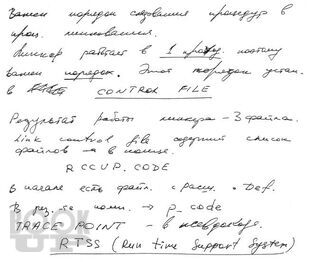 Важен порядок следования процедур в
проц. линкования.
Линкер работает в 1 проход, поэтому
важен порядок. Этот порядок устан.
в CONTROL FILE
Результат работы линкера - 3 файла.
Link control file содержит список
файлов в конце
RCCUP.CODE
В начале есть файл с расш. .Def.
В рез-те комп. → p code
TRACE POINT - в псевдокоде.
RTSS (Run time Support System)